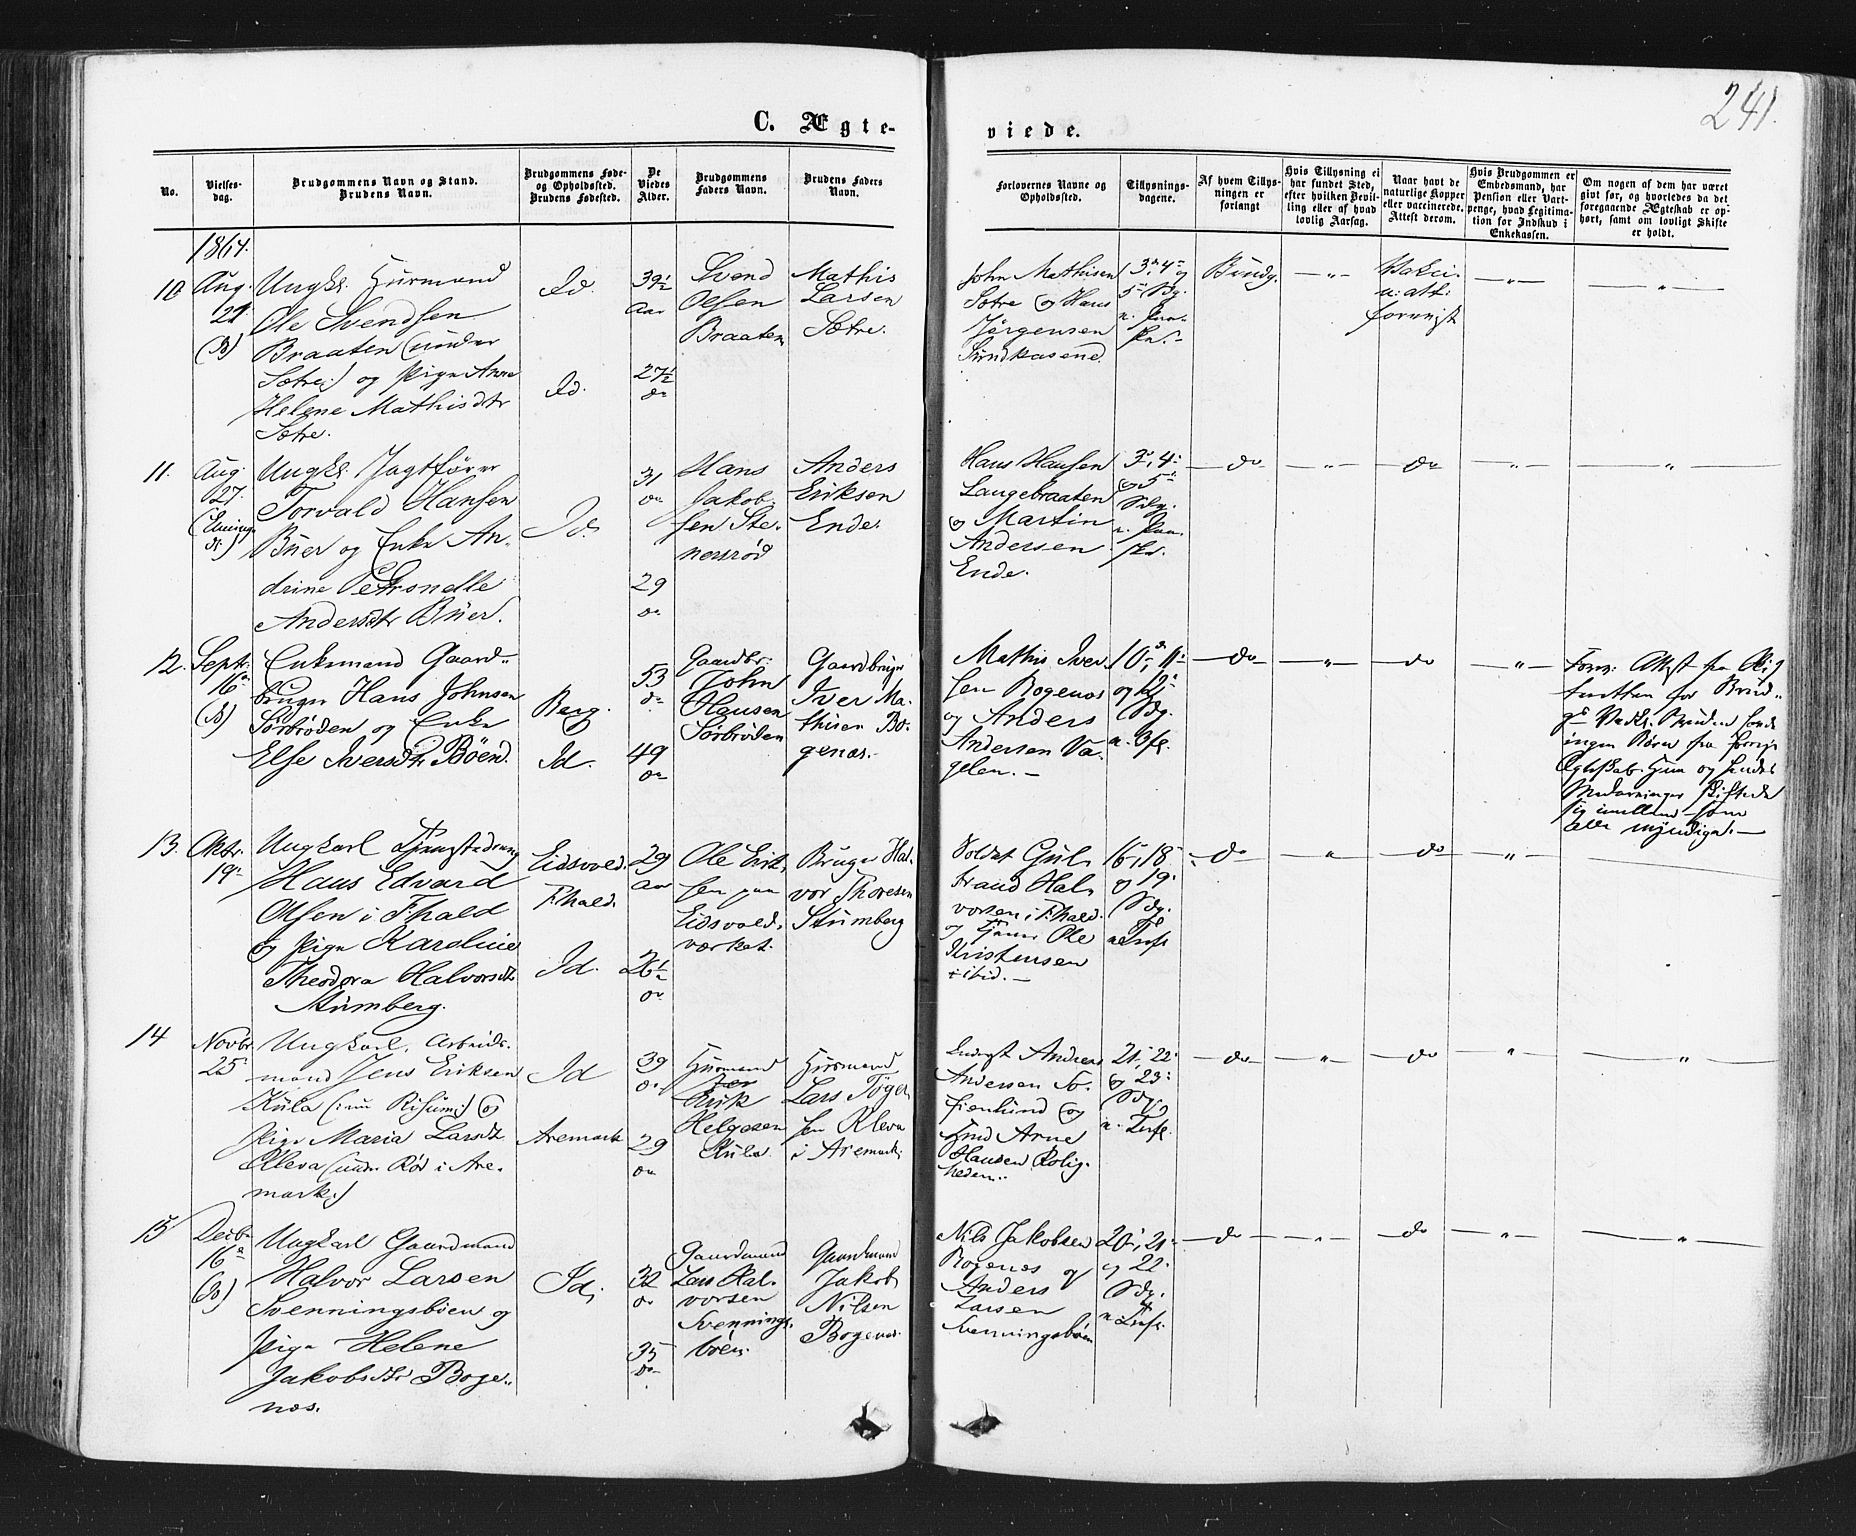 241.
C. Ægte-
viede.
No.
Vielses-
dag.
Brudgommens Navn og Stand.
Brudens Navn.
Brudgommens Føde-
og Opholdssted.
Brudens Fødested.
De
Viedes
Alder.
Brudgommens
Faders Navn.
Brudens Faders
Navn.
Forlovernes Navne og
Opholdssted.
Tillysnings-
dagene.
Af hvem Tillys-
ningen er
forlangt
Hvis Tillysning ei
har fundet Sted,
efter hvilken Bevil-
ling eller af hvad
lovlig Aarsag.
Naar havt de
naturlige Kopper
eller vaccinerede.
Attest derom.
Hvis Brudgommen er
Embedsmand, har
Pension eller Vart-
penge, hvad Legitima-
tion for Indskud i
Enkekassen.
Om nogen af dem har været
givt før, og hvorledes da det
foregaaende Ægteskab er op-
hørt, samt om lovligt Skifte
er holdt.
1864.
10
Aug.
21
(B)
Ungk. Husmand
Ole Svendsen
Braaten (under
Sætre) og Pige Anne
Helene Mathisdtr
Sætre.
Id.
Id.
39½
Aar
27½
do
Svend
Olsen
Braaten
Mathis
Larsen
Sætre.
John Mathisen
Sætre og Hans
Jørgensen
Sundkasene
3, 4 og
5 Sdg.
Brudg.
— " —
Vakci.
n: att:
forevist
— " —
— " —
11.
Aug.
27.
Ungk. Jagtfører
Torvald Hansen
Buer og Enke An-
drine Petronelle
Andersdtr Buer.
Id.
31
do
29
do
Hans
Jakob-
sen Ste-
nersrød
Anders
Eriksen
Ende.
Hans Hansen
Langebraaten
og Martin
Andersen
Ende.
3, 4
og 5
Sdg.
— do —
— " —
do
— " —
"
12.
Septr.
16
(B)
Enkemand Gaard-
bruger Hans Johnsen
Sørbrøden og Enke
Else Iversdtr Böen.
Berg.
Id.
53
do
49
do
Gaardbr.
John
Hansen
Sørbrøden
Gaardbruger
Iver Ma-
thisen Bo-
genæs.
Mathis Iver-
sen Bogenæs
og Anders
Andersen Va-
gelen. —
10, 11
og 12
Sdg.
— do —
— " —
do
— " —
Forev: Attest fra Ski
fretten for Brud-
g. Vedk. Bruden havde
ingen Børn fra forrige
Ægteskab. Hun og hendes
Medarvinger skiftede
sig imellem som
alle myndige. —
13.
Oktr.
19
Ungkarl Tjenestedreng
Hans Edvard
Olsen i Fhald
og Pige Karoline
Theodora Halvorsdtr
Stumberg.
Eidsvold.
Fhald.
Id.
29
Aar
26½
do
Ole Erik-
sen paa
Eidsvold-
værket.
Bruger Hal-
vor Thoresen
Stumberg
Soldat Gul-
brand Hal-
vorsen i Fhald.
og Ole
Kristensen
ibid. —
16, 18
og 19.
Sdg.
— do
"
do
— " —
14
Novbr.
25
Ungkarl, Arbeids-
mand Jens Eriksen
Kula (: nu Risum:) og
Pige Maria Larsdtr
Kleva (under Rød i Are-
mark.)
Id
Aremark
39
do
29
do
Husmand
Erik
Helgesen
Kula
Husmand
Lars Tøger-
sen Kleva
i Aremark.
Andreas
Andersen So-
fienlund og
Arne
Hansen Rolig-
heden.
21, 22
og 23
Sdg.
— do —
— " —
— do —
"
"
15
Decbr
16
(B)
Ungkarl Gaardmand
Halvor Larsen
Svenningsböen og
Pige Helene
Jakobsdtr Boge-
næs.
Id.
32
do
35
do
Gaardmand
Lars Hal-
vorsen
Svennings-
böen.
Gaardmand
Jakob
Nilsen
Bogenæs.
Nils Jakobsen
Bogenæs og
Anders
Larsen
Svenningsböen
20, 21
og 22
Sdg.
— do —
— " —
do
— " —
"